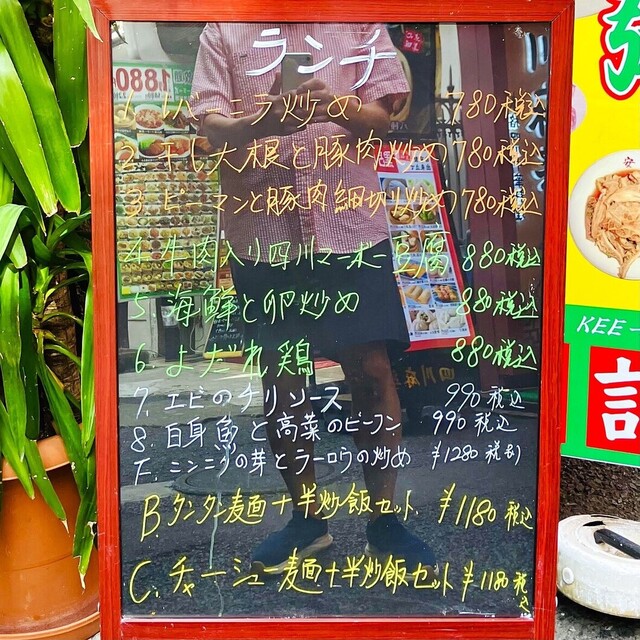 ランチ
1. レバーニラ炒め 780税込
2. 干し大根と豚肉炒め 780税込
3. ピーマンと豚肉細切り炒め 780税込
4. 牛肉入り四川マーボー豆腐 880税込
5. 海鮮と卵炒め 880税込
6. よだれ鶏 880税込
7. エビのチリソース 990税込
8. 白身魚と高菜のビーフン 990税込
F. ニンニクの芽とラーロウの炒め ¥1280税別
B. タンタン麺+半炒飯セット. ¥1180税込
C. チャーシュー麺+半炒飯セット ¥1180税込
KEE-